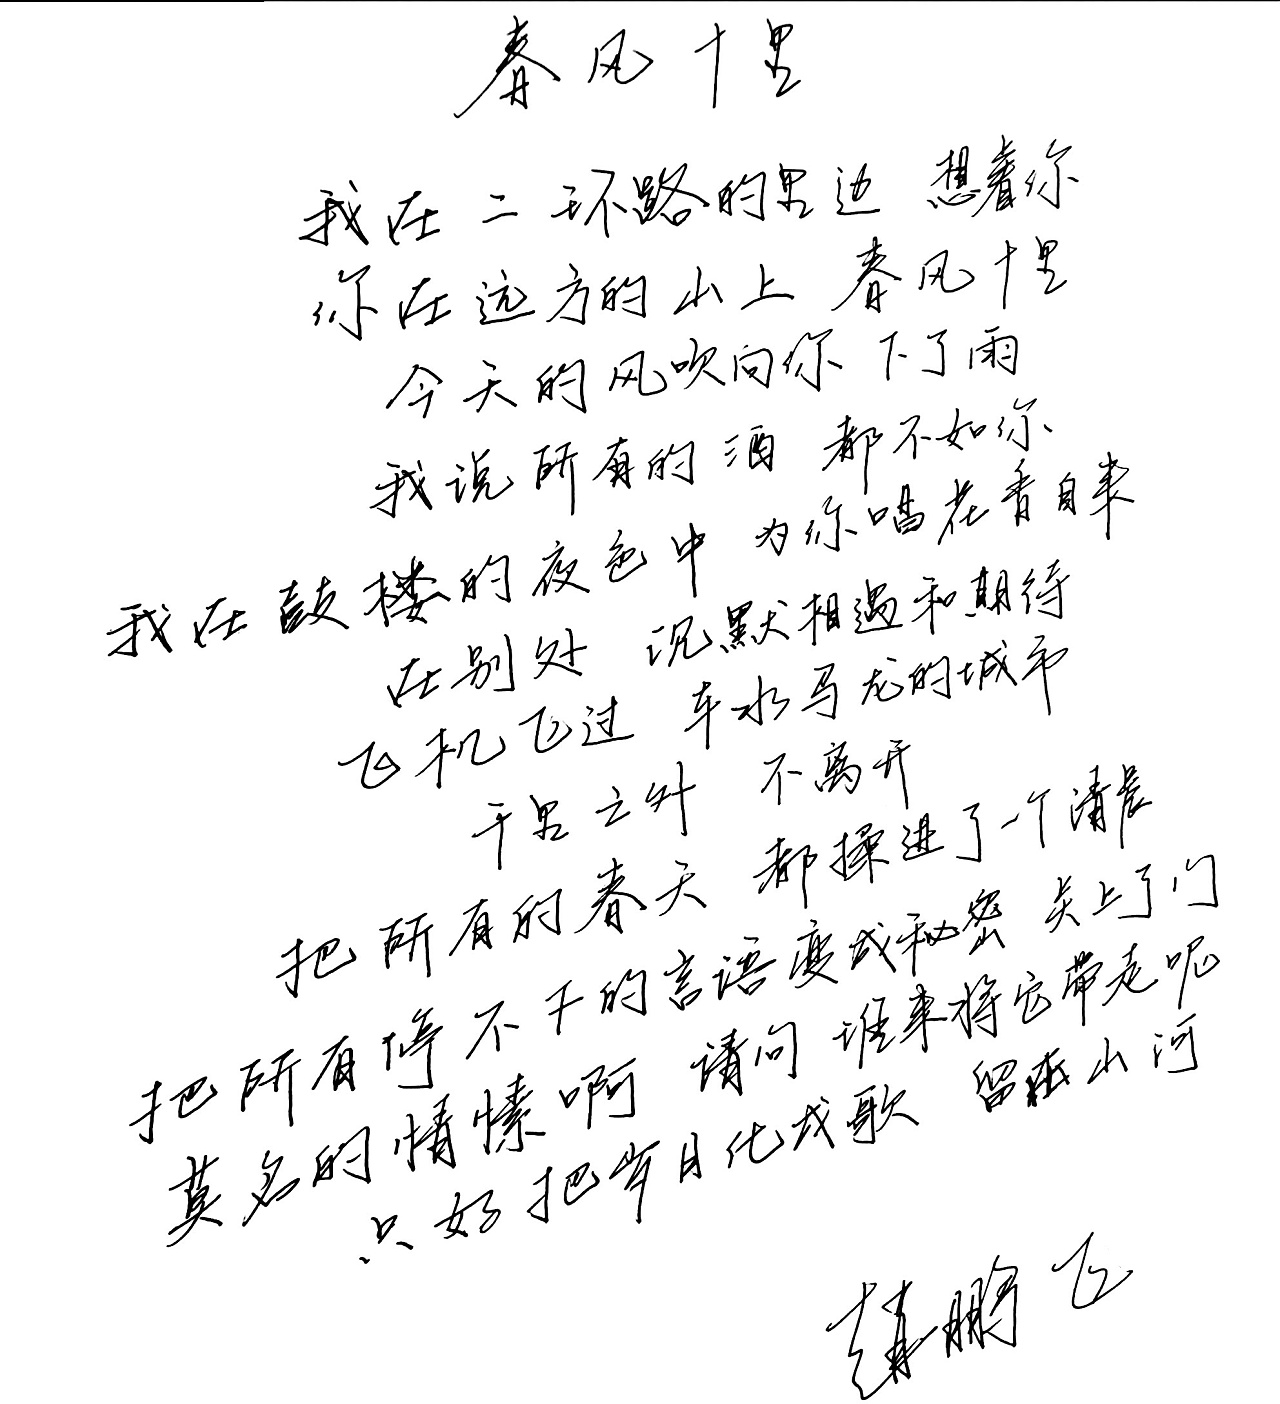 春风十里
我在二环路的里边 想着你
你在远方的山上 春风十里
今天的风吹向你 下了雨
我说所有的酒 都不如你
我在鼓楼的夜色中 为你唱花香自来
在别处 沉默相遇和期待
飞机飞过 车水马龙的城市
千里之外 不离开
把所有的春天 都揉进了一个清晨
把所有停不下的言语变成秘密 关上了门
莫名的情愫啊 请问 谁来将它带走呢
只好把岁月化成歌 留在山河
赵鹏飞